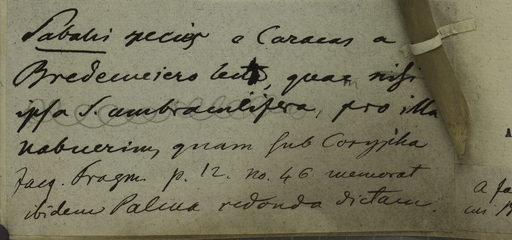 Sabalis species e Caracas a
Bredemeiero lecta, quae nisi
ipsa S. umbraculifera, pro illa
habuerim, quam sub Corypha
Jacq. Fragm. p. 12. no. 46 memorat
ibidem Palma redonda dictam.
A fa